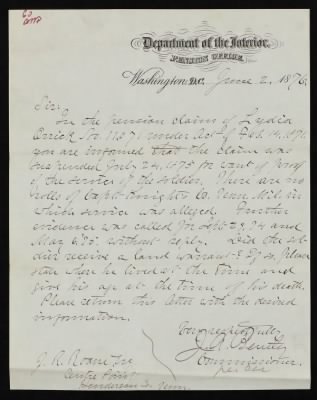 Department of the Interior,
PENSION OFFICE,
Washington, D.C. June 2, 1876
Sir:
In the pension claim of Lydia
No. 11571 under Act of Feb. 14, 1871
you are informed that the claim was
suspended 24, 1875 for want of proof
of the service of the soldier. There are no
rolls of Capt. Knight's Co. Tenn. Mil. in
which service was alleged. Further
evidence was called for Sept 29, 74 and
Mar 6, 75 without reply. Did the sol-
dier receive a land warrant? If so, Please
state where he lived at the time and
give his age at the time of his death.
Please return this letter with the desired
information.
Very respectfully
J. A. Bentley
Commissioner.
J. R.
Centre Point
Henderson Co. Tenn.